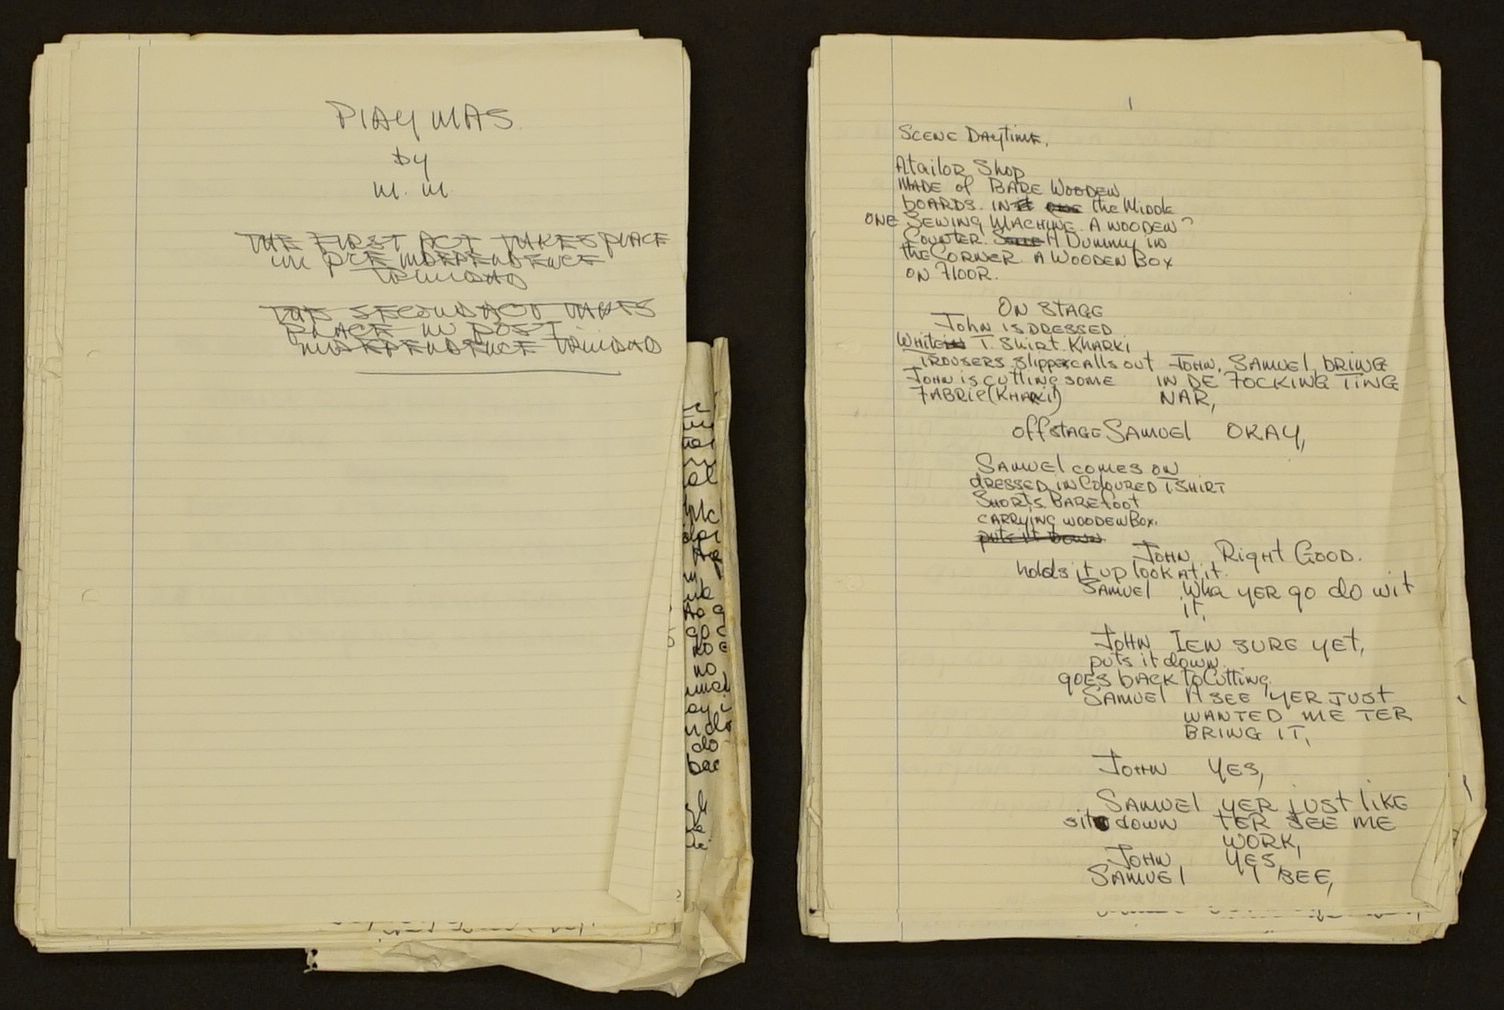 PLAY MAS
by
M. M.
THE FIRST ACT TAKES PLACE
IN PRE INDEPENDENCE
TRINIDAD
THE SECOND ACT TAKES
PLACE IN POST
INDEPENDENCE TRINIDAD
1
SCENE DAYTIME.
A tailor Shop
MADE of BARE WOODEN
BOARDS. IN the MIDDLE
ONE SEWING MACHINE. A WOODEN
COUNTER. A DUMMY IN
the CORNER. A WOODEN BOX
ON FLOOR.
ON STAGE
JOHN IS DRESSED
WHITE T. SHIRT KHARKI
TROUSERS SLIPPERS calls out JOHN, SAMUEL, BRING
JOHN is cutting some IN DE FOCKING TING
FABRIC (KHARKI) NAR,
OFFSTAGE SAMUEL OKAY,
SAMUEL COMES ON
DRESSED IN COLOURED T SHIRT
SHORTS. BAREFOOT
CARRYING WOODEN BOX.
puts it DOWN
JOHN Right GOOD.
holds it up look at it.
SAMUEL Wha YER go do wit
it,
JOHN IEN SURE YET,
puts it down.
goes BACK to Cutting
SAMUEL A SEE YER JUST
WANTED ME TER
BRING IT,
JOHN YES,
SAMUEL YER JUST LIKE
sit down TER SEE ME
WORK,
JOHN YES,
SAMUEL I SEE,